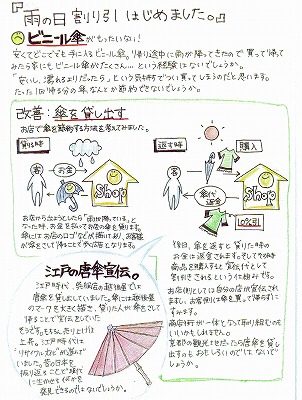 『雨の日 割り引き はじめました。』
ビニール傘がもったいない!
安くてどこででも手に入るビニール傘。帰り途中に雨が降ってきたので買って帰って
みたら家にもビニール傘がたくさん…という経験はないでしょうか。
「安いし、濡れるよりだったら」という気持ちでつい買ってしまうのだと思います。
たった1回帰る分の傘、なんとか節約できないでしょうか。
改善:傘を貸し出す
お店で傘を節約する方法を考えてみました。
貸りる時
客
お金
Shop
お店から出ようとしたら「雨が降っている」と
なった時、お金を払ってお店の傘を借ります。
傘にはお店のロゴなどが描いてあり、お客様
が傘をさして歩くことで広告となります。
返す時
購入
客
傘代
返金
Shop
10%引
後日、傘を返すと借りた時の
お金は返金されます。そしてその時
商品を購入すると宣伝代として
割引きされるという仕組みです。
お店側としては自分の店が宣伝され
ますし、お客側は傘を買って帰らずに
すみます。
商店街が一体となって取り組むのも
いいかもしれません。
京都の観光とかだったら唐傘を貸し
出すのもおもしろいのではないで
しょうか。
江戸の唐傘宣伝。
江戸時代、呉服店の越後屋では
唐傘を貸し出していました。傘には越後屋
のマークを大きく描き、貸りた人が傘をさして
帰ることで宣伝をしていた
そうです。もちろん売り上げは
上昇。江戸時代は
リサイクル力に
いました。昔の日本を
振り返ることで現代
に生かせる何かを
発見できるのではないでしょうか。